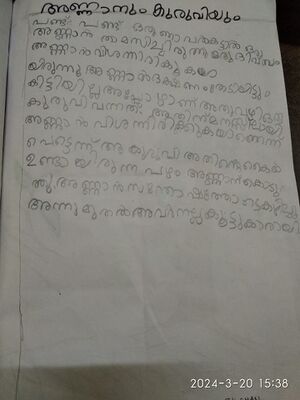 അണ്ണാനും കുരുവിയും
പണ്ട് പണ്ട് ഒരു ണ്ണാ വൻകാട്ടിൽ ഒരു
അണ്ണാൻ താമസിച്ചിരുന്നു ഒരു ദിവസം
അണ്ണാൻ വിശന്നിരിക്കുകയാ
യിരുന്നു അണ്ണാൻ ഭക്ഷണം തേടിയിട്ടും
കിട്ടിയില്ല അപ്പോഴാണ് അതുവഴി ഒരു
കുരുവി വന്നത് അതിന് മനസ്സിലായി
അണ്ണാൻ വിശന്നിരിക്കുകയാണെന്ന്
പെട്ടെന്ന് ആ കുരുവി അതിന്റെ കൈയി
ഉണ്ടായിരുന്ന പഴം അണ്ണാന് കൊടു
ത്തു അണ്ണാൻ സന്തോഷത്തോടെ കഴിച്ചു
അന്നുമുതൽ അവർ നല്ല കൂട്ടുകാരായി
2024-3-20 15:38